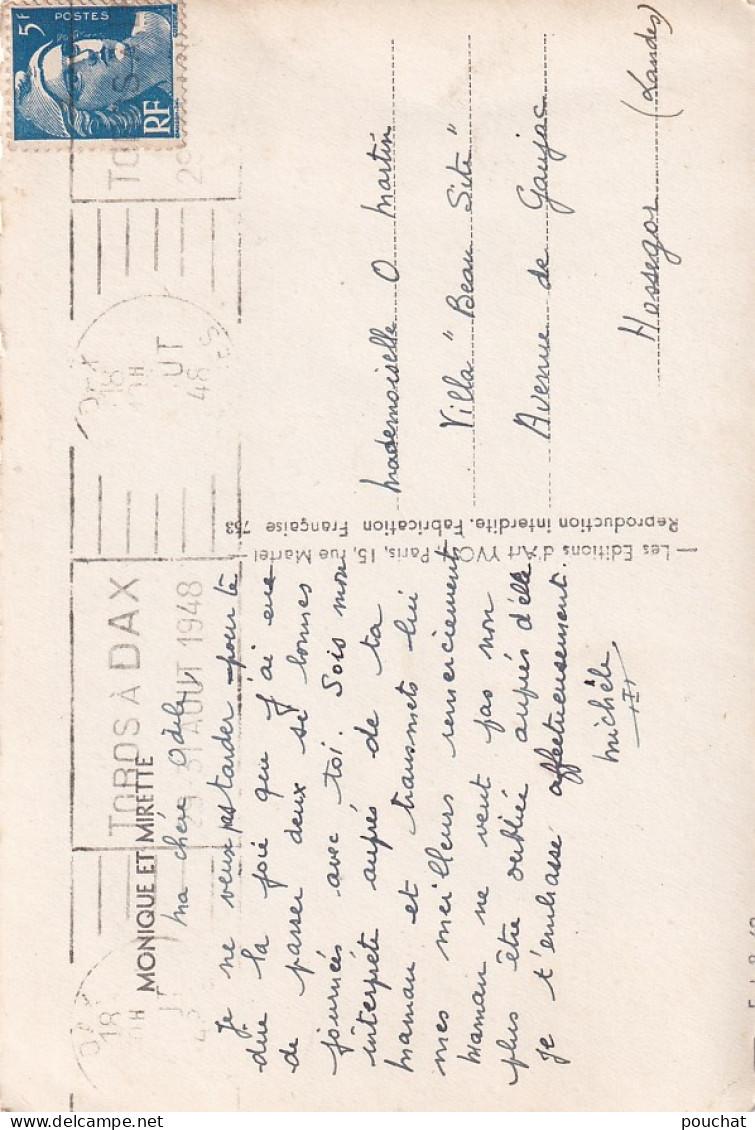 MONIQUE ET MIRETTE
Ma chère Odile,
Je ne veux pas tarder pour te
dire la joie que j'ai eue
de passer deux si bonnes
journées avec toi. Sois mon
interprète auprès de ta
maman et transmets lui
mes meilleurs remerciements
Maman ne veut pas non
plus être oubliée auprès d'elle
je t'embrasse affectueusement.
Michèle
— Les Editions d'Art YVON, Paris, 15, rue Martel —
Reproduction interdite. Fabrication Française 753
5f
POSTES
RF
TOROS À DAX
29 31 AOUT 1948
DAX
18H
UT
48
DAX
18H
UT
48
TOROS
29
Mademoiselle O Martin
Villa "Beau Site"
Avenue de Gaujac
Hossegor (Landes)
pouchat